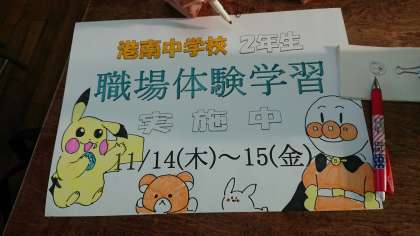 港南中学校 2年生
職場体験学習
実施中
11/14(木)～15(金)